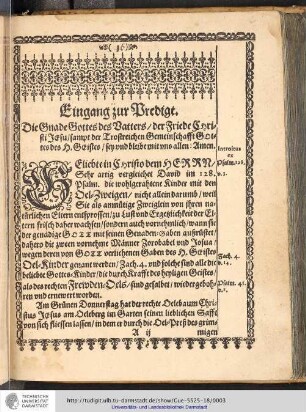 (16)
Eingang zur Predigt.
Die Gnade Gottes des Vatters / der Friede Chri-
sti Jesu / sampt der Trostreichen Gemeinschafft Got-
tes des H. Geistes / sey und bleibe mit uns allen: Amen.
Geliebte in Christo dem HERRN /
Sehr artig vergleichet David im 128.
Psalm. die wohlgerahtene Kinder mit den
Oel-Zweigen / nicht allein darumb / weil
Sie als anmütige Zweiglein von ihren na-
türlichen Eltern entsprossen / zu Lust und Ergetzlichkeit der El-
tern frisch daher wachsen / sondern auch vornehmlich / wann sie
der genädige GOTT mit seinen Genaden-gaben außrüstet /
dahero die zween vornehme Männer Zorobabel und Josua /
wegen deren von GOTT verliehenen Gaben des H. Geistes
Oel-Kinder genant werden / Zach. 4. und solche sind alle die
geliebte Gottes-Kinder / die durch Krafft des heyligen Geistes /
als des rechten Frewden-Oels / sind gesalbet / wiedergeboh-
ren und ernewert worden.
Am Grünen Donnerstag hat der rechte Oelebaum Chri-
stus Jesus am Oeleberg im Garten seinen lieblichen Safft
von sich fliessen lassen / in dem er durch die Oel-Preß des grim-
A ij
migen
Introitus
ex
Psalm. 128.
v. 3.
Zach. 4.
v. 14.
Psalm. 45.
TECHNISCHE
UNIVERSITÄT
DARMSTADT
http://tudigit.ulb.tu-darmstadt.de/show/Gue-5525-18/0003
Universitäts- und Landesbibliothek Darmstadt